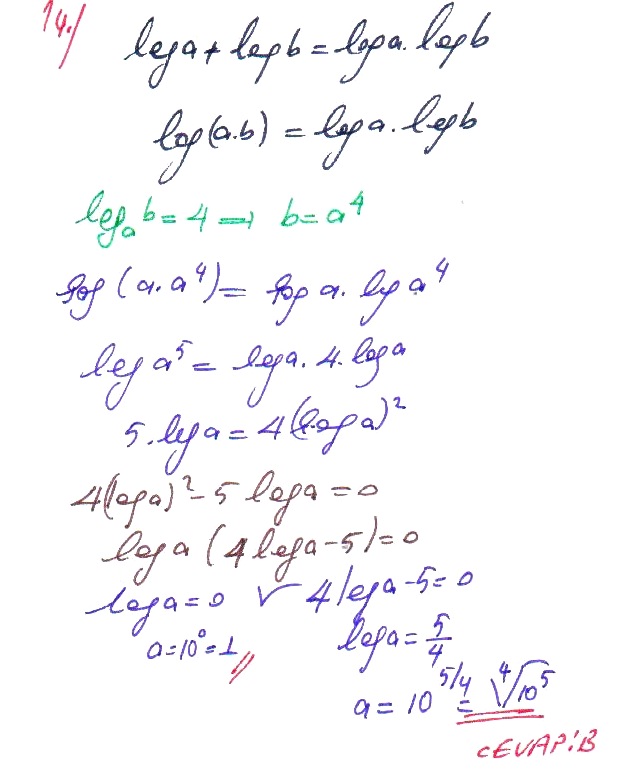 14./
log a + log b = log a . log b
log(a.b) = log a . log b
logₐ b = 4 → b = a⁴
log (a.a⁴) = log a . log a⁴
log a⁵ = log a . 4 . log a
5 . log a = 4(log a)²
4(log a)² - 5 log a = 0
log a (4 log a - 5) = 0
log a = 0 ∨ 4 log a - 5 = 0
a = 10⁰ = 1 // log a = 5/4
a = 10^5/4 = ⁴√10⁵
CEVAP: B